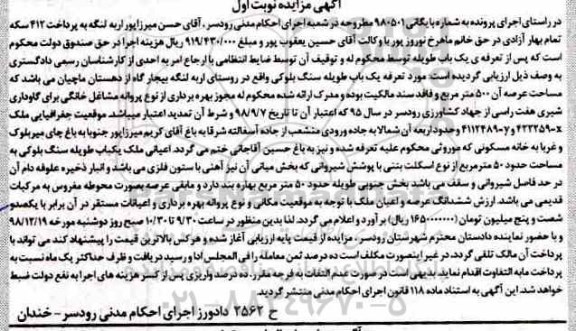 آگهی مزایده نوبت اول
در راستای اجرای پرونده به شماره بایگانی ۹۸۰۵۰۱ مطروحه در شعبه اجرای احکام مدنی رودسر، آقای حسن میرزاپور اربه لنگه به پرداخت ۴۱۲ سکه
تمام بهار آزادی در حق خانم ماهرخ نوروز پور با وکالت آقای حسین یعقوب پور و مبلغ ۹۱۹/۴۳۰/۰۰۰ ریال هزینه اجرا در حق صندوق دولت محکوم
است که پس از تعرفه ی یک باب طویله توسط محکوم له و توقیف آن توسط ضابط انتظامی با ارجاع امر به احدی از کارشناسان رسمی دادگستری
به وصف ذیل ارزیابی گردیده است: مورد تعرفه یک باب طویله سنگ بلوکی واقع در روستای اربه لنگه بیجار گاه از دهستان ماچیان می باشد که
مساحت عرصه آن ۵۰۰ متر مربع و فاقد سند مالکیت بوده و مدرک ارائه شده محکوم له مجوز بهره برداری از نوع پروانه مشاغل خانگی برای گاوداری
شیری هفت راسی از جهاد کشاورزی رودسر در سال ۹۵ که اعتبار آن تا تاریخ ۹۸/۹/۷ و شرط آن تمدید اعتبار میباشد. موقعیت جغرافیایی ملک
۴۲۲۵۹۰=x و ۴۱۱۲۴۸۹=y وحدود اربعه آن شمالا به جاده ورودی منشعب از جاده آسفالته شرقا به باغ آقای کریم میرزاپور جنوبا به باغ چای میربلوک
و غربا به خانه مسکونی که موروثی محکوم علیه تعرفه شده و نیز به باغ حسین آقاجانی ختم می گردد. اعیانی ملک یکباب طویله سنگ بلوکی به
مساحت حدود ۵۰ مترمربع از نوع اسکلت بتنی با پوشش شیروانی که بخش میانی آن نیز آهنی با ستون فلزی می باشد و انبار ذخیره علوفه دام آن
در حد فاصل شیروانی و سقف می باشد بخش جنوبی طویله حدود ۵۰ متر مربع بهاره بند دارد و مابقی عرصه بصورت محوطه مغروس به مرکبات
قدیمی می باشد. ارزش ششدانگ عرصه و اعیان ملک با توجه به موقعیت مکانی و نوع پروانه بهره برداری و اعیانات مستقر در آن برابر با یکصدو
شصت و پنج میلیون تومان (۱۶۵۰۰۰۰۰۰۰ ریال) بر آورد و اعلام می گردد. لذا بدین منظور در ساعت ۹/۳۰ تا ۱۰/۳۰ صبح روز دوشنبه مورخه ۹۸/۱۲/۱۹
و با حضور نماینده دادستان محترم شهرستان رودسر، مزایده از قیمت پایه ارزیابی آغاز شده و هرکس بالاترین قیمت را پیشنهاد کند می تواند با
پرداخت آن مالک تلقی گردد. در غیر اینصورت مکلف است ده درصد ثمن معامله را فی المجلس ادا و رسید دریافت و ظرف حداکثر یک ماه نسبت به
پرداخت مابه التفاوت اقدام نماید. بدیهی است در صورت عدم التفات به فرجه مقرر، ده درصد واریزی پس از کسر هزینه های اجرا به نفع دولت ضبط
خواهد شد. این آگهی به استناد ماده ۱۱۸ قانون اجرای احکام مدنی منتشر گردید.
ح ۲۵۶۲ دادورز اجرای احکام مدنی رودسر - خندان
۰۲۱-۸۸۳۴۹۶۷۰-۵